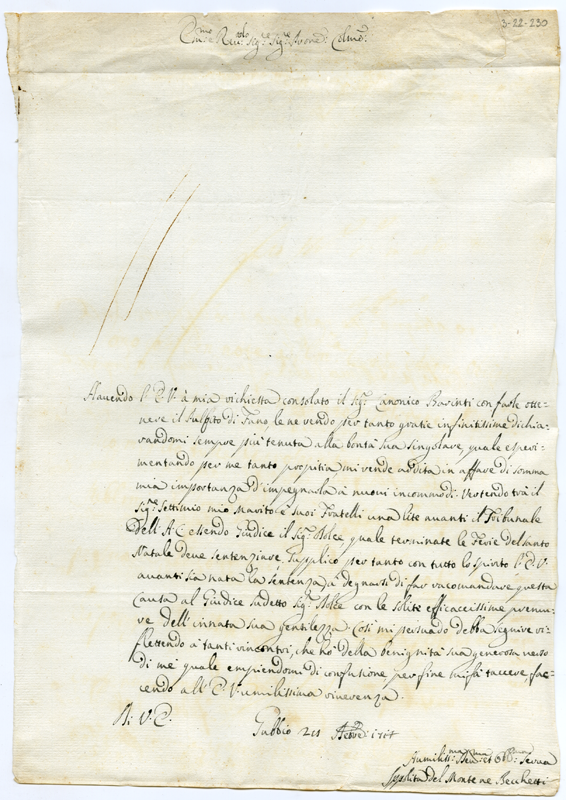 3-22-230
Em.mo e Rev.do Sig.re Sig.re Prone Colmo:
Havendo l'E.V. à mia richiesta consolato il Sig.r Canonico Basinti con farle otte-
nere il Pulpito di Fano le ne rendo per tanto gratie infinitissime dichia-
randomi sempre più tenuta alla bontà sua singolare, quale esperi-
mentando per me tanto propitia mi rende ardita in affare di somma
mia importanza d'impegnarla à nuovi incommodi. Vertendo trà il
Sig.re Settimio mio Marito e suoi Fratelli una lite avanti il Tribunale
dell'A.C. essendo Giudice il Sig.r quale terminate le Ferie del santo
Natale deve sentenziare, supplico per tanto con tutto lo spirito l'E.V.
avanti sia nata la sentenza degnarsi di far racomandare questa
causa al Giudice sudetto Sig.r con le solite efficaccissime premu-
re dell'innata sua gentilezza. Così mi persuado debba seguire ri-
flettendo à tanti rincontri, che hò della benignità sua generosa verso
di me quale empiendomi di confusione per fine mi fà tacere, fac-
cendo all'E.V. umilissima riverenza.
Di V.E.
Gubbio 21 Xbre
Aumiliss.ma et Serva
Ippolita del Monte ne Becchetti